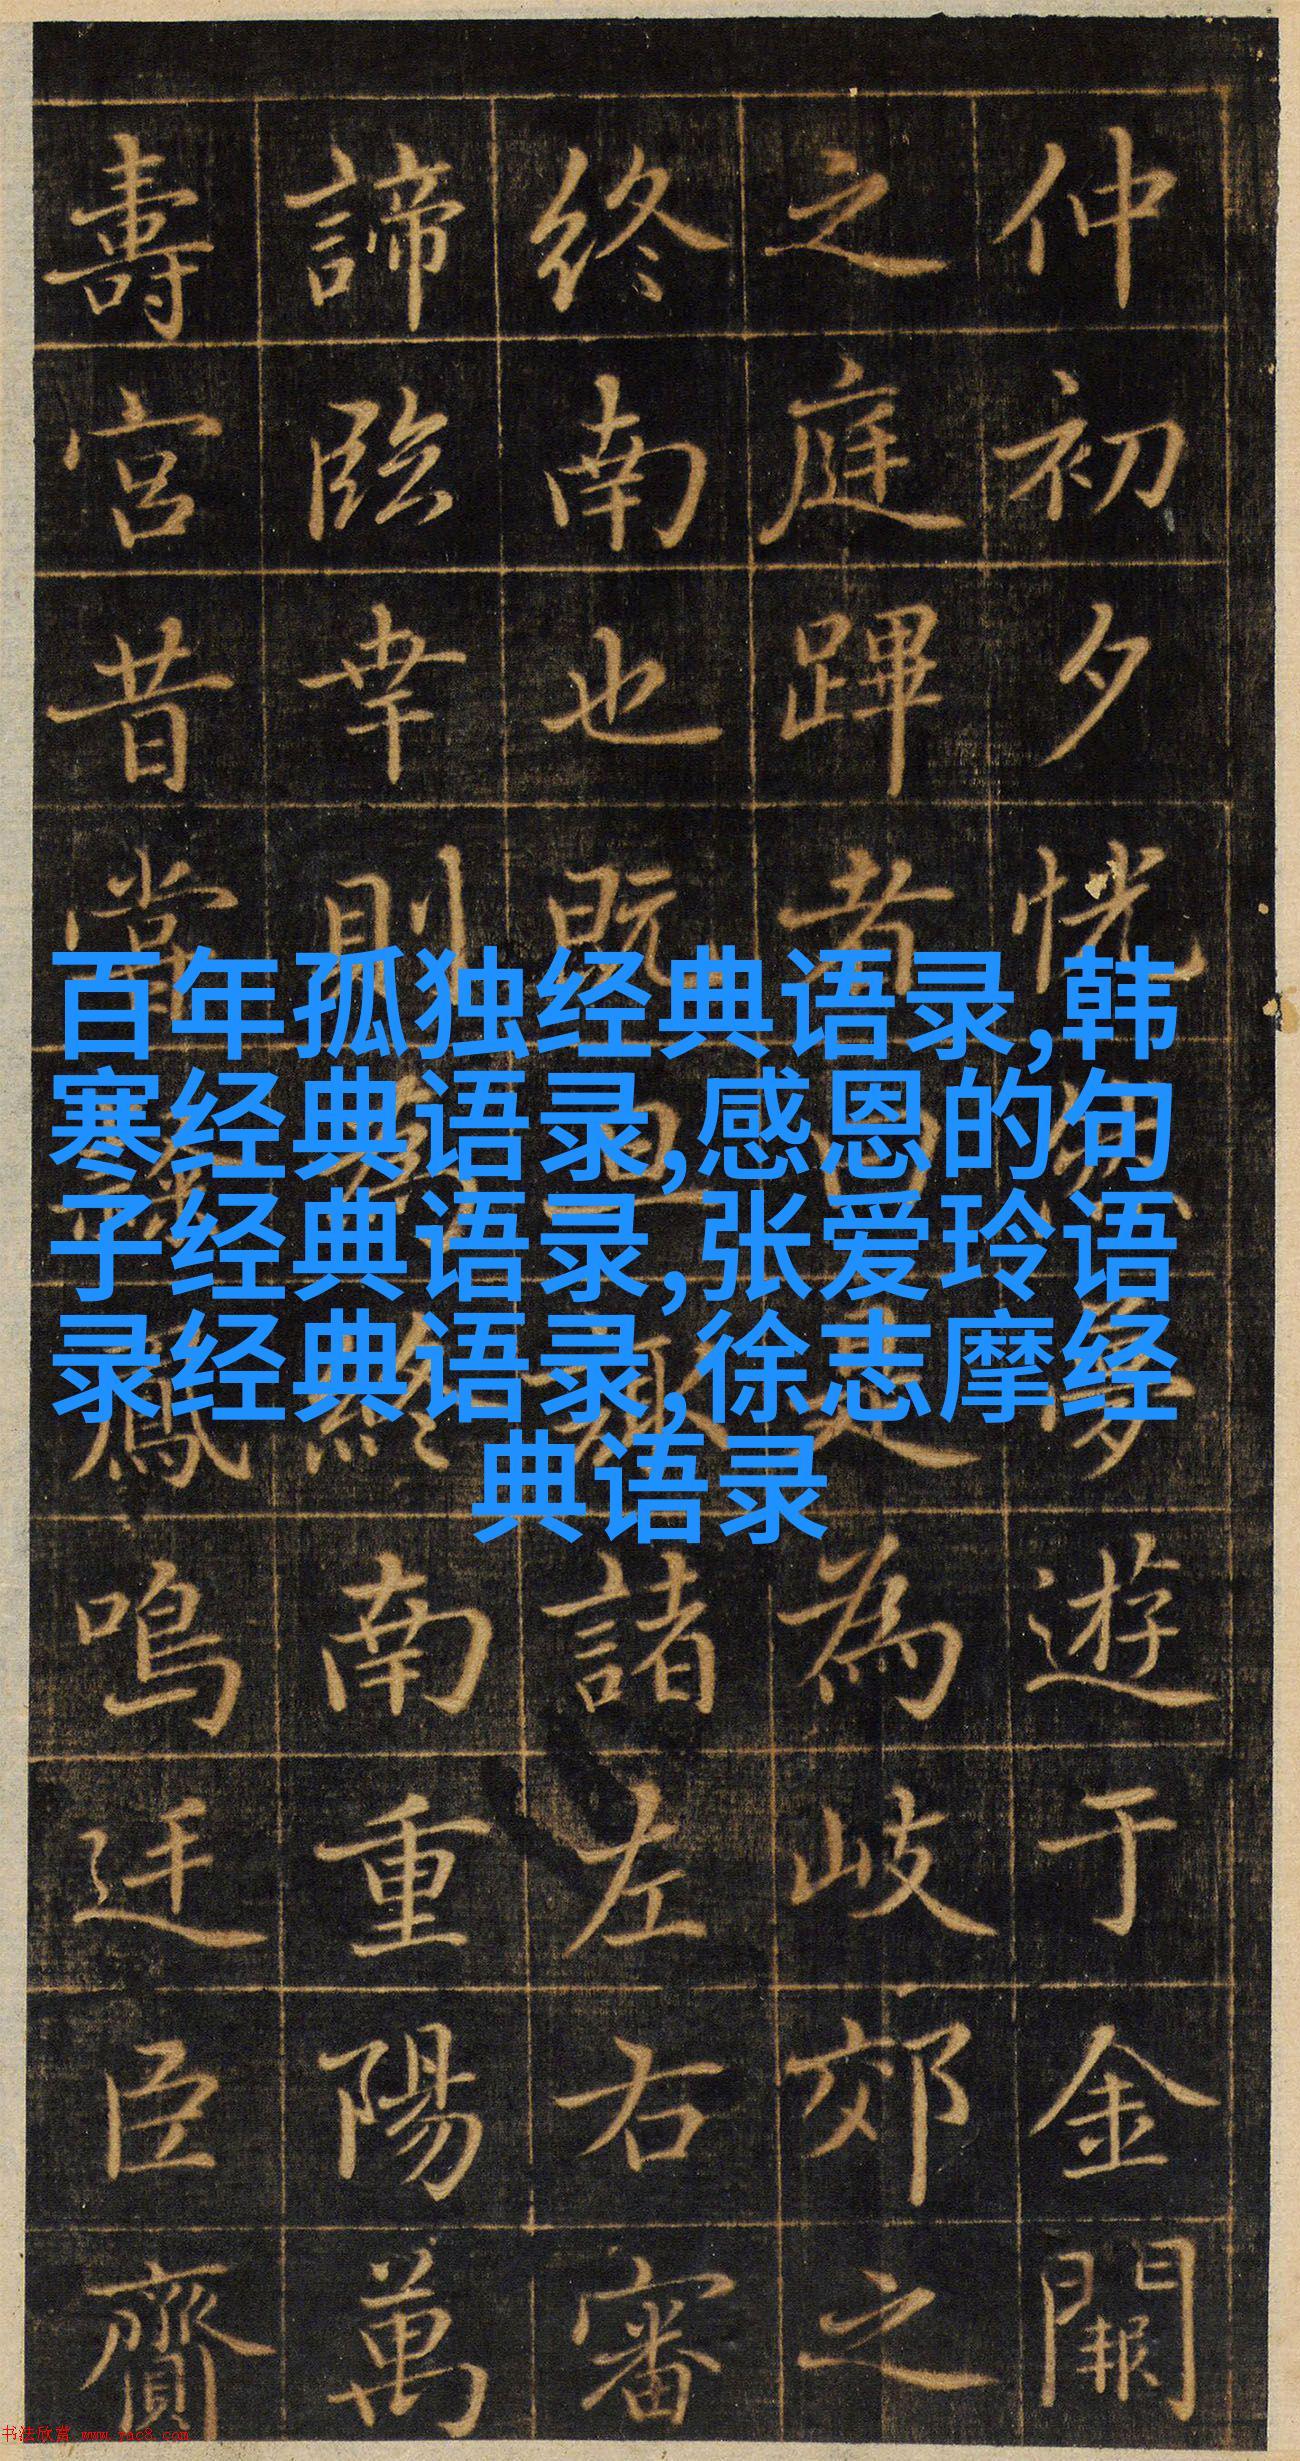 仲初夕恍夢遊于金闕
之庭蹕者是為岐郊之
終南也既且諸左右審
諦臨幸則終南重陽萬
壽宮昔嘗鳳鳴廷臣齎
百年孤独经典语录,韩
寒经典语录,感恩的句
子经典语录,张爱玲语
录经典语录,徐志摩经
典语录
书法欣赏 www.yac8.com